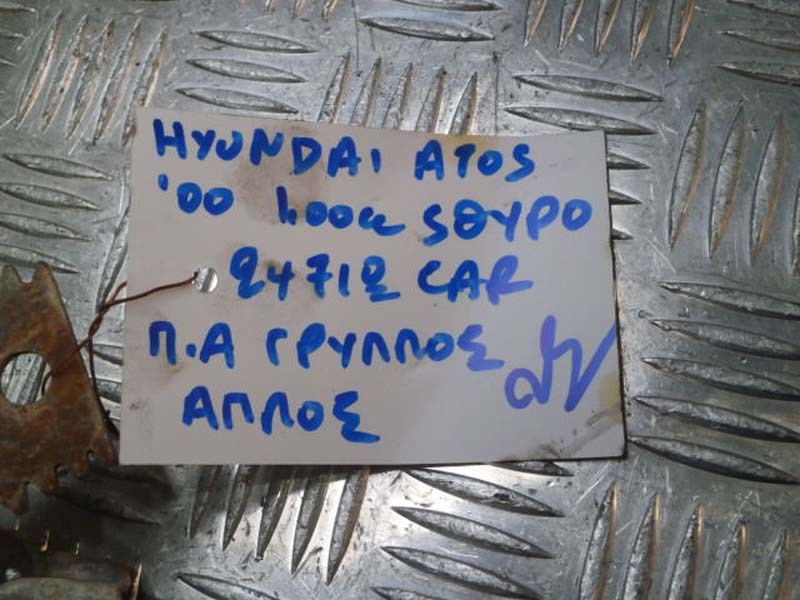 HYUNDAI ATOS
'00 1.00cc 5ΘΥΡΟ
24712 CAR
Π.Α ΓΡΥΛΛΟΣ
ΑΠΛΟΣ